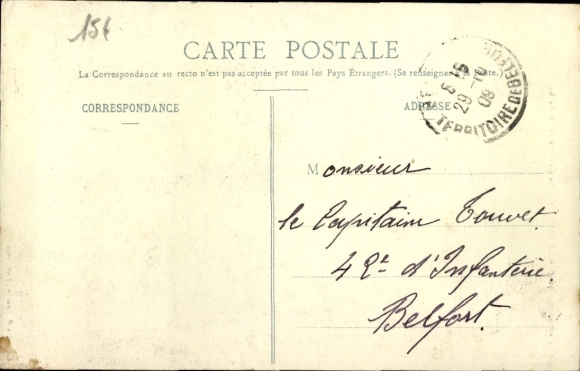 15f
CARTE POSTALE
La Correspondance au recto n'est pas acceptée par tous les Pays Étrangers. (Se renseigner à la Poste.)
CORRESPONDANCE
ADRESSE
TERRITOIRE DE BELFORT
29 -10
09
Monsieur
le Capitaine Touvet
42e d'Infanterie
Belfort.